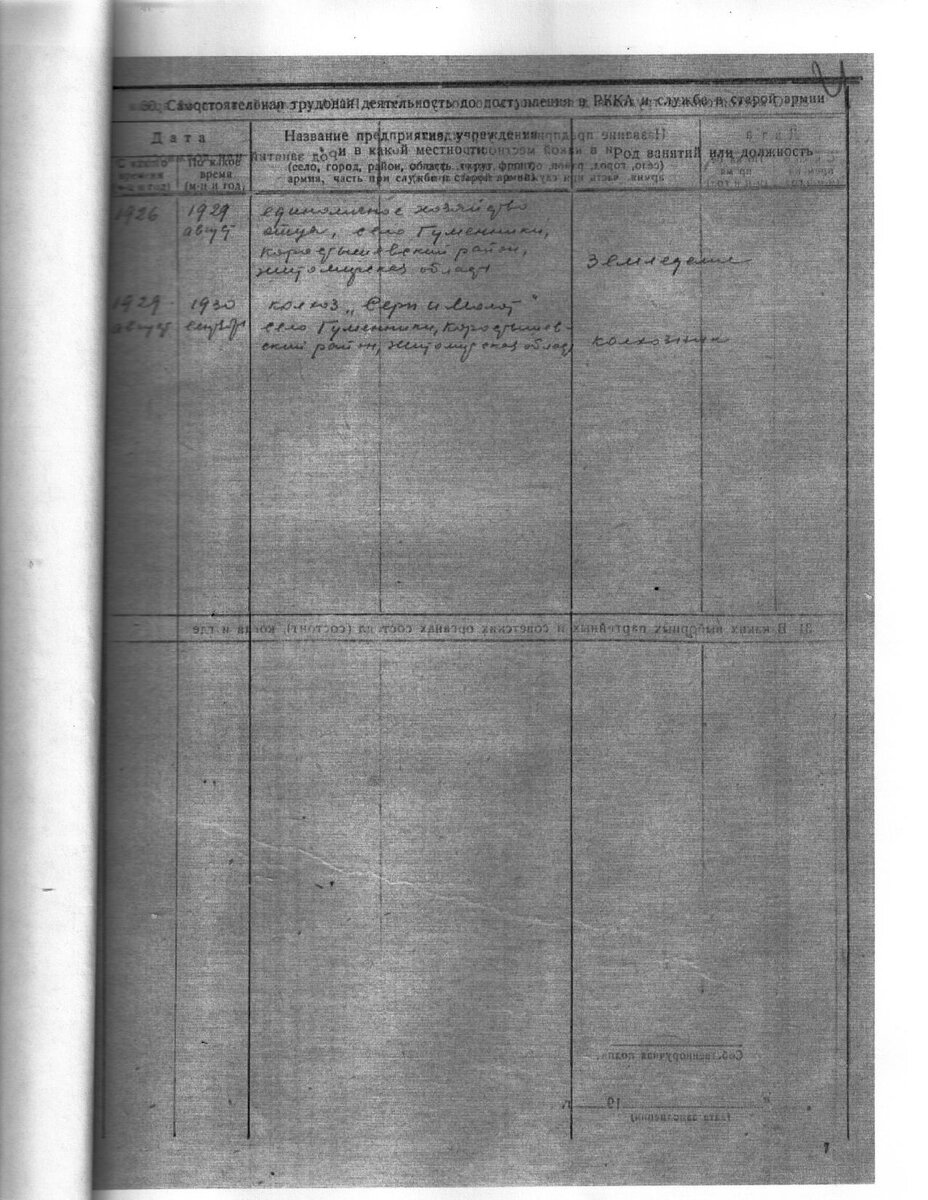 30. Самостоятельная трудовая деятельность до поступления в РККА и служба в старой армии
Дата
Название предприятия, учреждения
и в какой местности
(село, город, район, область, округ, фронт,
армия, часть при службе в старой армии)
Род занятий или должность
С какого
времени
(м-ц и год)
По какое
время
(м-ц и год)
1926
1929
август
единоличное хозяйство
отца, село Гуменники,
Коростышевский район,
Житомирская область
Земледелие
1929
август
1930
колхоз „Серп и Молот"
село Гуменники, Коростышев-
ский район, Житомирская облас
колхозник
31. В каких выборных партийных и советских органах состоял (состоит), когда и где
Собственноручная подпись
" 19 г.
(дата заполнения)
7